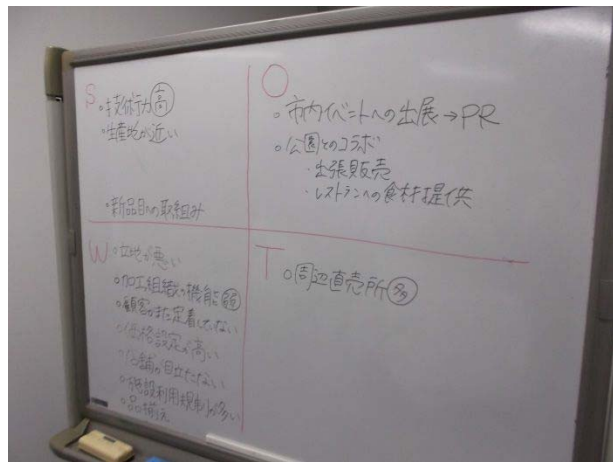 S
・技術力 高
・生産地が近い
・新品目への取組み
O
・市内イベントへの出展→PR
○公園とのコラボ
・出張販売
・レストランへの食材提供
W
○立地が悪い
・加工組織の機能 弱
・顧客がまだ定着していない
・価格設定が高い
・店舗が目立たない
・施設利用規制が多い
・品揃え
T
○周辺直売所 多